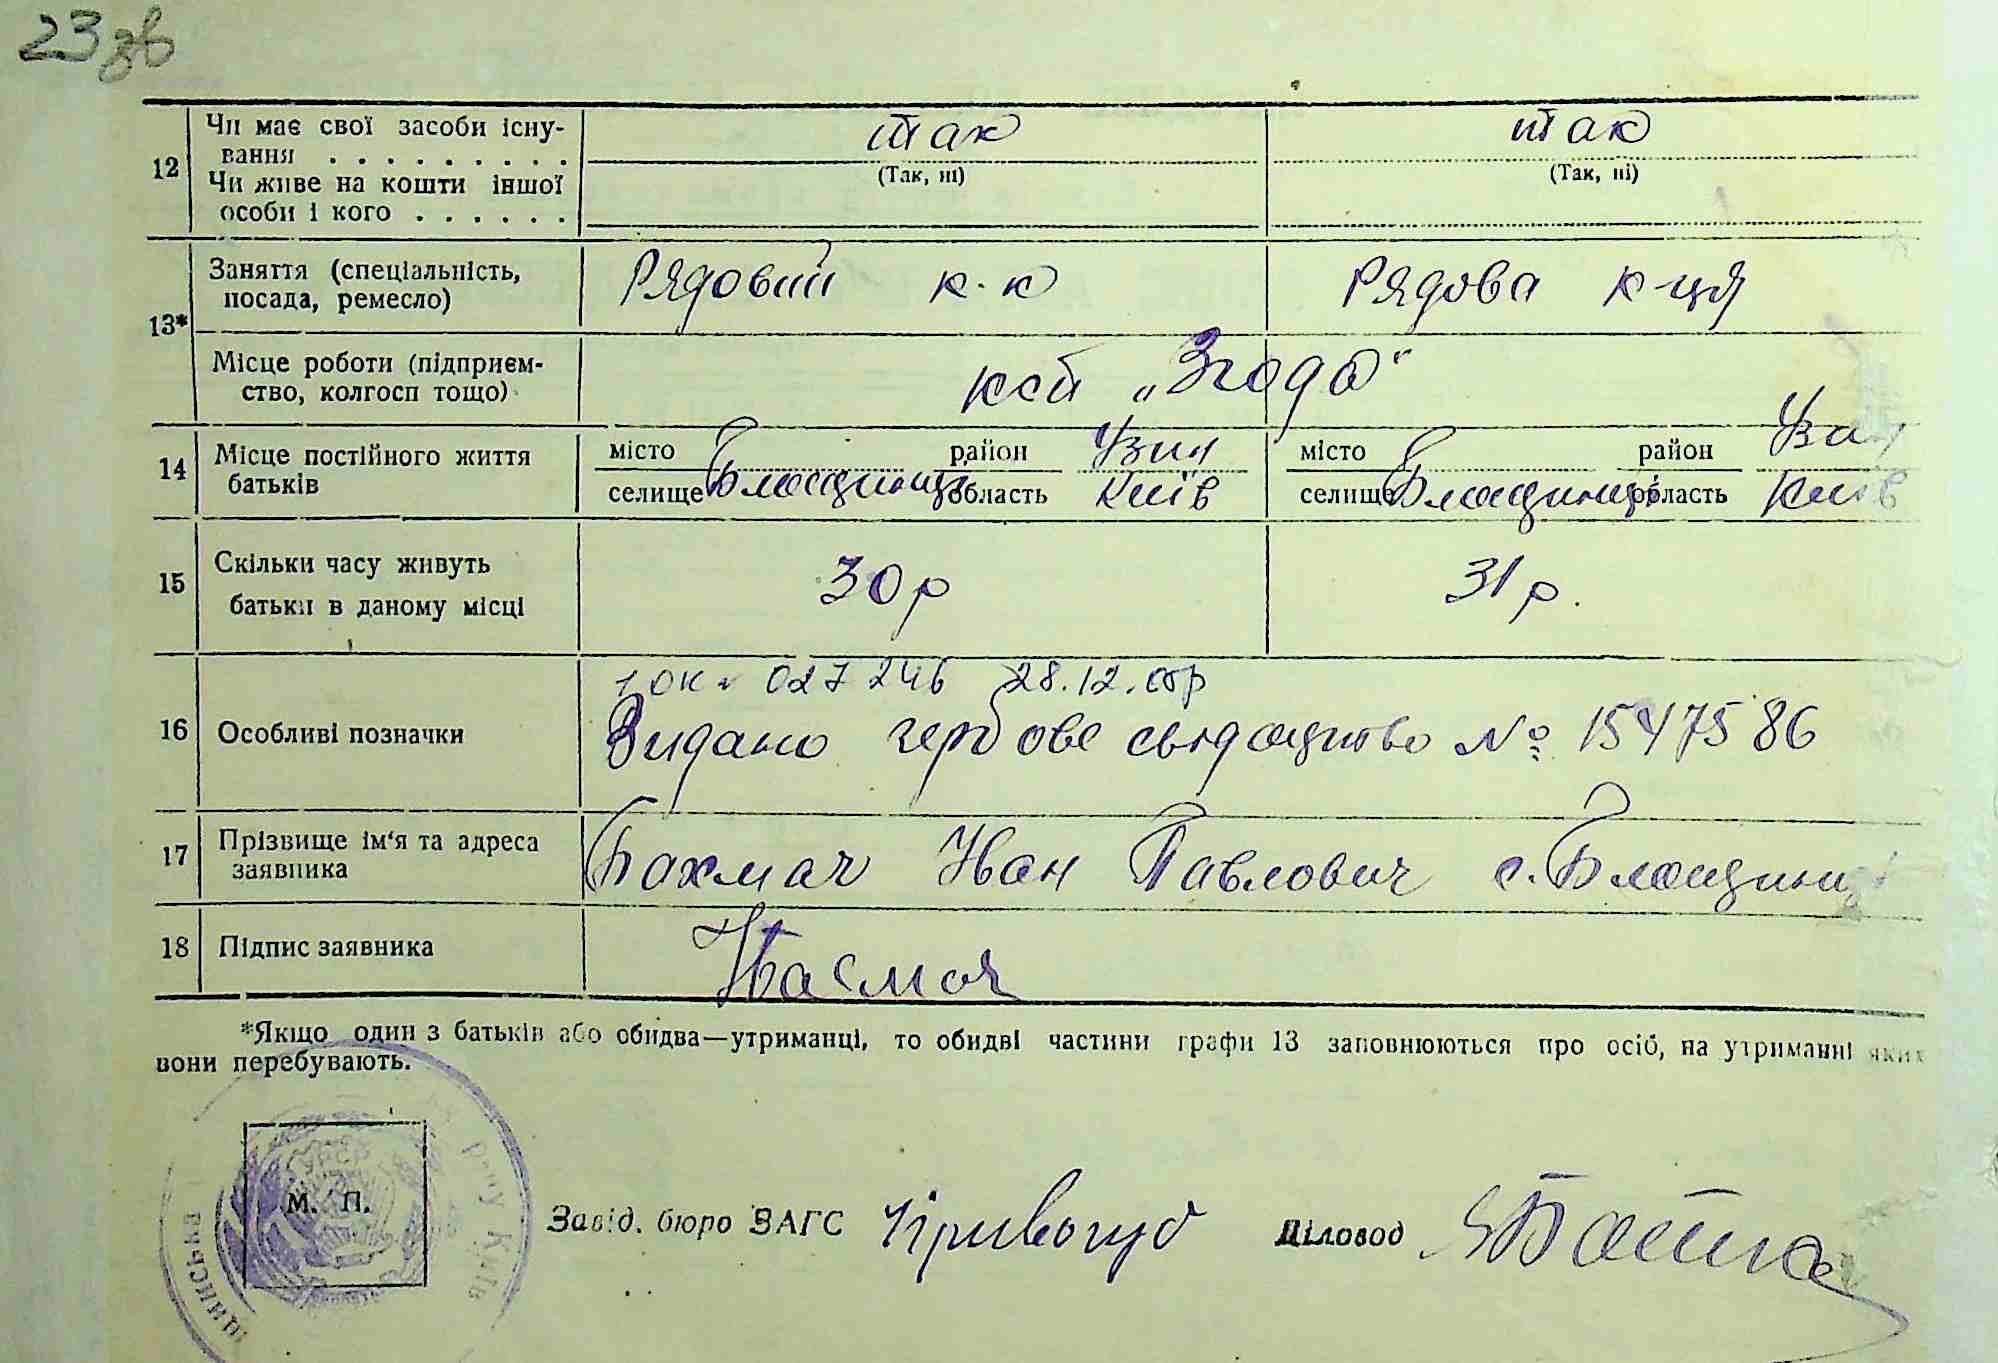 23 зв
12 Чи має свої засоби існу-
вання . . . . . . . . . так так
(Так, ні) (Так, ні)
Чи живе на кошти іншої
особи і кого . . . . . .
13* Заняття (спеціальність,
посада, ремесло) Рядовий к-к Рядова к-ця
Місце роботи (підприєм-
ство, колгосп тощо) „Згода"
14 Місце постійного життя
батьків
місто район Узин місто район Узин
селище Блощинці область Київ селище Блощинці область Київ
15 Скільки часу живуть
батьки в даному місці 30 р 31 р.
027246 28.12.
16 Особливі позначки Видано гербове свідоцтво № 1547586
17 Прізвище ім'я та адреса
заявника Бахмач Іван Павлович с. Блощинці
18 Підпис заявника
*Якщо один з батьків або обидва—утриманці, то обидві частини графи 13 заповнюються про осіб, на утриманні яких
вони перебувають.
УРСР
р-ну Київ
М. П.
Завід. бюро ЗАГС Діловод